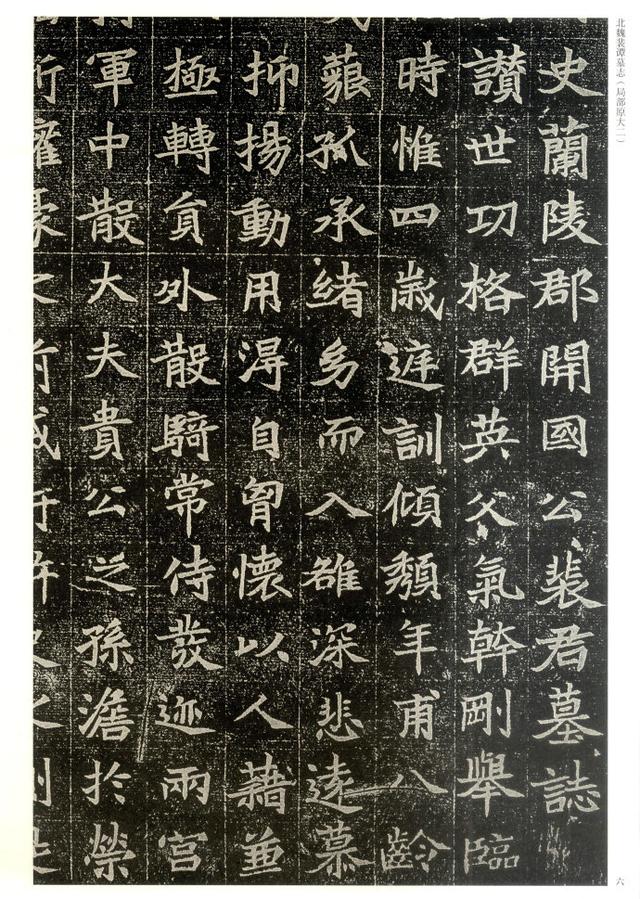 北魏裴谭墓志（局部原大二）
史蘭陵郡開國公裴君墓誌
讚世功格群英父氣幹剛舉臨
時惟四歲庭訓傾頹年甫八齡
藐孤承緒而入雖深悲遠慕
抑揚動用得自胷懷以人藉並
極轉貟外散騎常侍發迹兩宮
軍中散大夫貴公之孫澹於榮
六